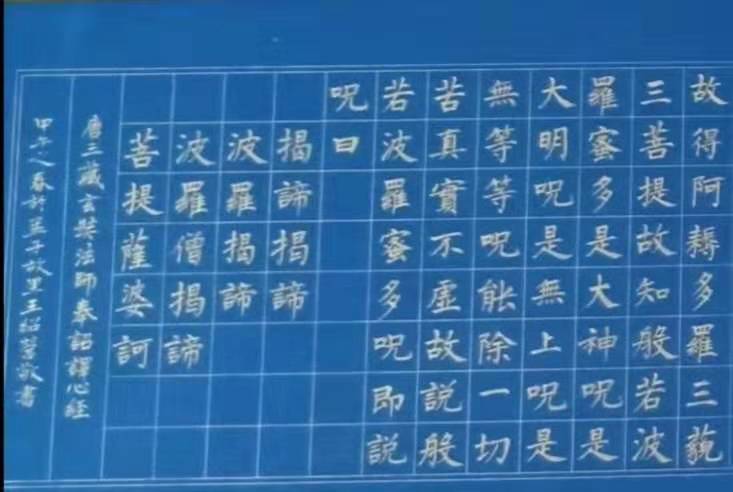 故得阿耨多羅三藐
三菩提故知般若波
羅蜜多是大神呪是
大明呪是無上呪是
無等等呪能除一切
苦真實不虛故說般
若波羅蜜多呪即說
呪曰
揭諦揭諦
波羅揭諦
波羅僧揭諦
菩提薩婆訶
唐三藏玄奘法師奉詔譯心經
甲午之春於孟子故里王紹箴敬書